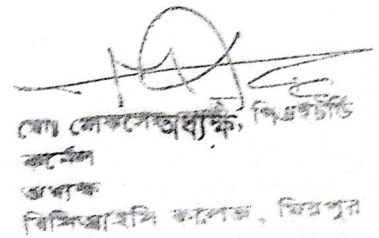 মোঃ অধ্যক্ষ, পিএইচডি
কর্নেল
অধ্যক্ষ
বিসিআইসি কলেজ, মিরপুর